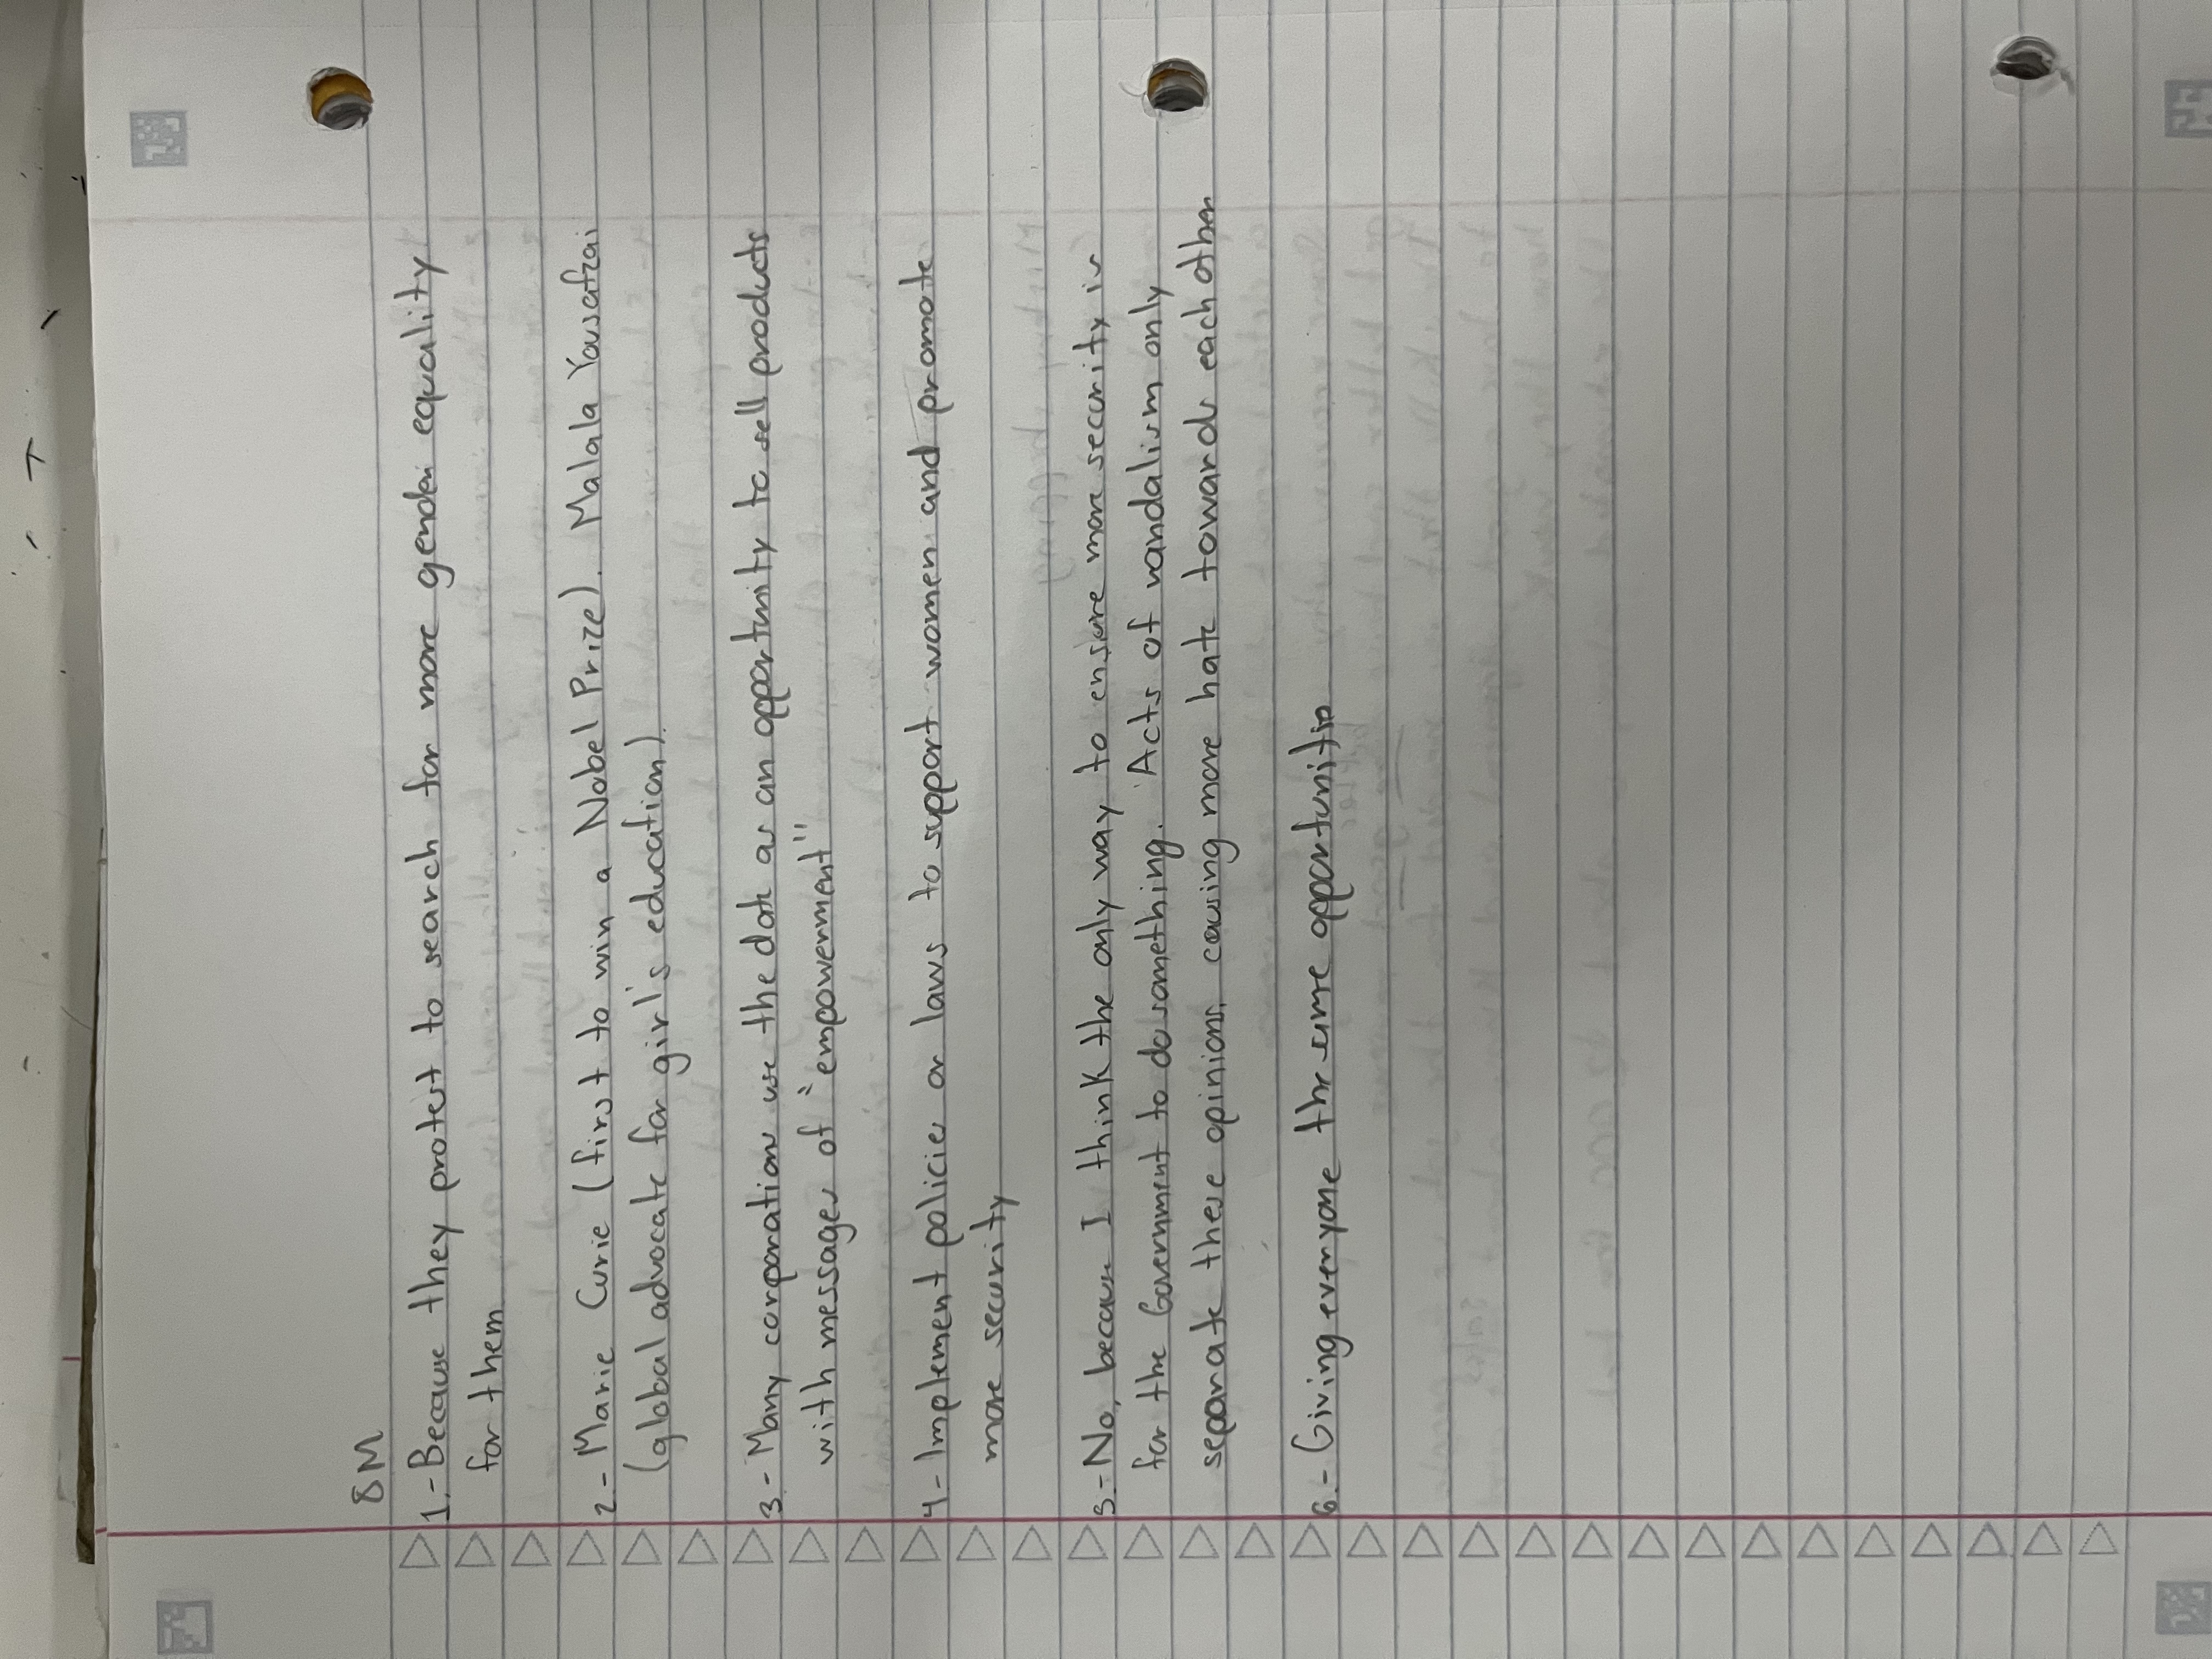 8M
1.- Because they protest to search for more gender equality
for them
2.- Marie Curie (first to win a Nobel Prize). Malala Yousafzai
(global advocate for girl's education).
3.- Many corporations use the date as an opportunity to sell products
with messages of "empowerment"
4.- Implement policies or laws to support women and promote
more security
5.- No, because I think the only way to ensure more security is
for the Government to do something. Acts of vandalism only
separate these opinions, causing more hate towards each other
6.- Giving everyone the same opportunities